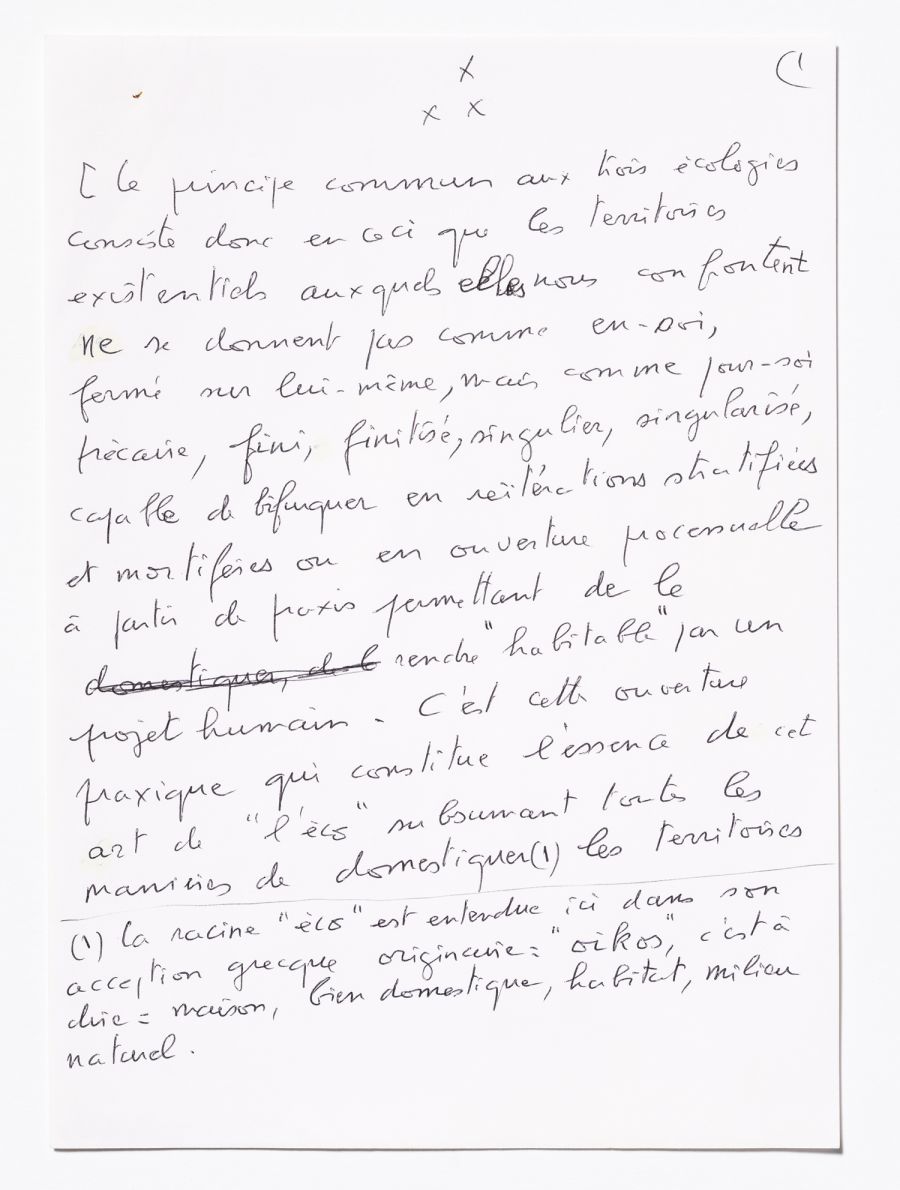 x
x x
[ Le principe commun aux trois écologies
consiste donc en ceci que les territoires
existentiels auxquels elles nous confrontent
ne se donnent pas comme en-soi,
fermé sur lui-même, mais comme pour-soi
précaire, fini, finitisé, singulier, singularisé,
capable de bifurquer en réitérations stratifiées
et mortifères ou en ouverture processuelle
à partir de praxis permettant de le
domestiquer, de l rendre "habitable" par un
projet humain. C'est cette ouverture
praxique qui constitue l'essence de cet
art de "l'éco" subsumant toutes les
manières de domestiquer(1) les territoires
(1) La racine "éco" est entendue ici dans son
acception grecque originaire = "oïkos", c'est à
dire = maison, bien domestique, habitat, milieu
naturel.